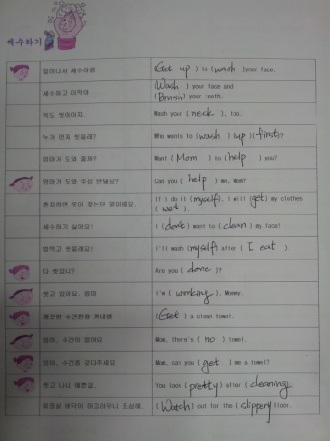 세수하기
일어나서 세수하렴
(Get up) to (wash) your face.
세수하고 이닦아
(Wash) your face and
(Brush) your teeth.
목도 씻어야지.
Wash your (neck), too.
누가 먼저 씻을래?
Who wants to (wash) (up) (first)?
엄마가 도와 줄까?
Want (Mom) to (help) you?
엄마가 도와 주심 안돼요?
Can you (help) me, Mom?
혼자하면 옷이 젖는단 말이예요.
If I do it (myself), I will (get) my clothes
(wet).
세수하기 싫어요!
I (don't) want to (clean) my face!
밥먹고 씻을래요!
I'll wash (myself) after (I eat).
다 씻었니?
Are you (done)?
씻고 있어요, 엄마
I'm (working), Mommy.
깨끗한 수건만을 꺼내렴
(Get) a clean towel.
엄마, 수건이 없어요
Mom, there's (no) towel.
엄마, 수건좀 갖다주세요
Mom, can you (get) me a towel?
씻고 나니 예쁜걸.
You look (pretty) after (cleaning).
화장실 바닥이 미끄러우니 조심해.
(Watch) out for the (slippery) floor.